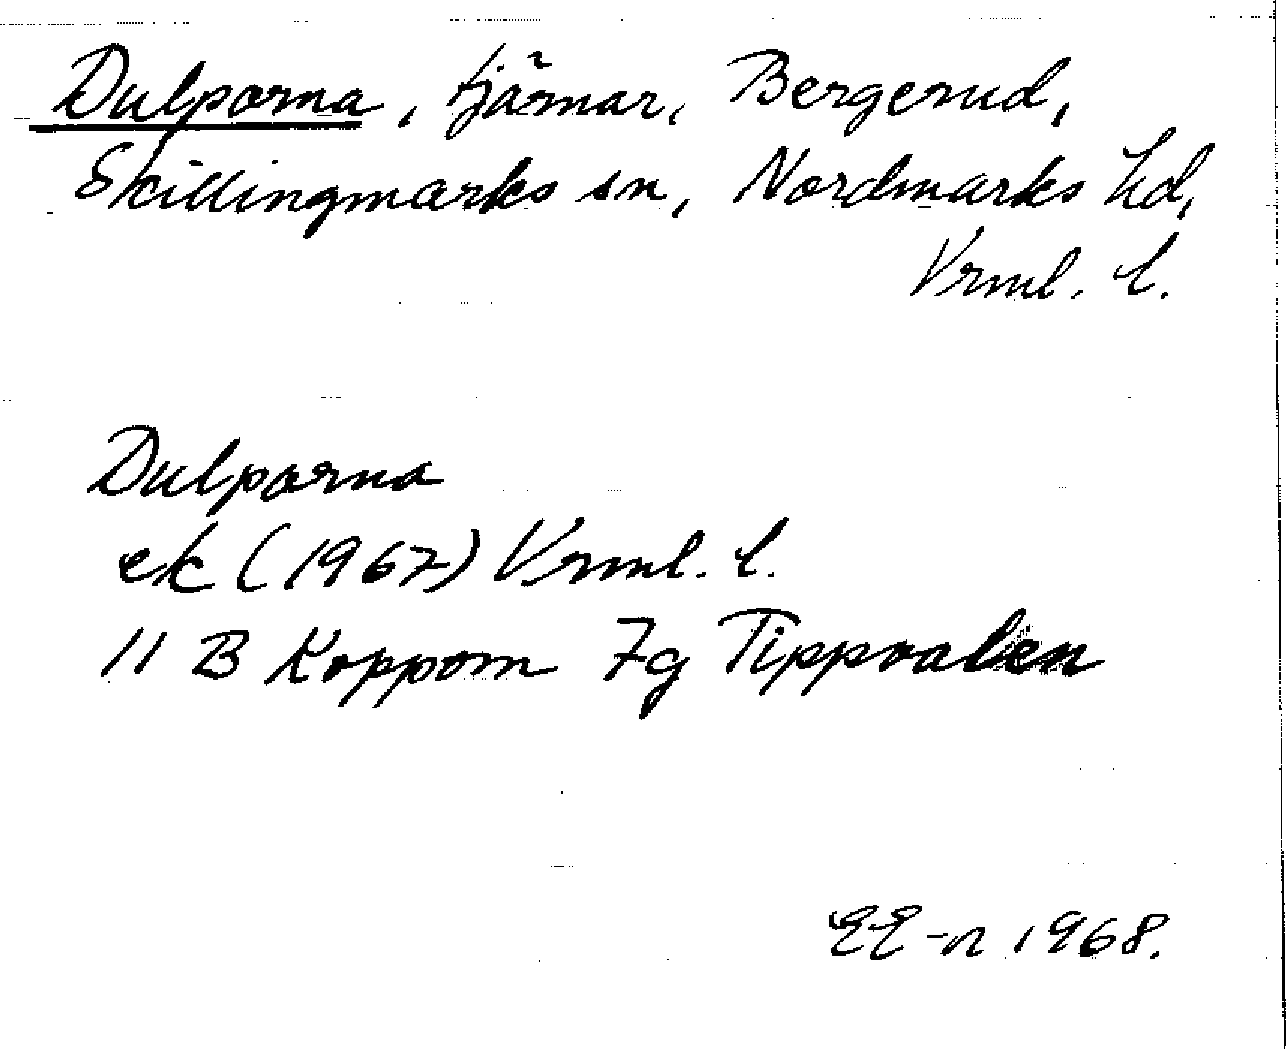 Dulporna, tjärnar, Bergerud,
Skillingmarks sn, Nordmarks hd,
Vrml. l.
Dulporna
ek (1967) Vrml. l.
11 B Koppom 7g Tippvalen
EE-n 1968.